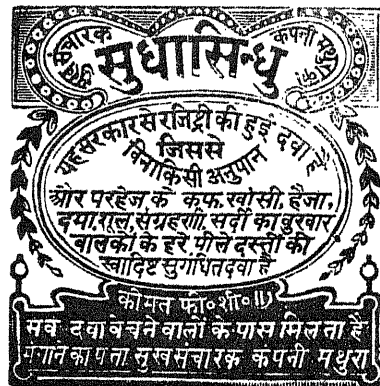 सुख संचारक कंपनी मथुरा का
सुधासिन्धु
यह सरकार से रजिट्री की हुई दवा है
जिससे
विना किसी अनुपान
और परहेज के कफ, खांसी, हैजा,
दमा, शूल, संग्रहणी, सर्दी का बुखार
बालकों के हरे, पीले दस्तों की
स्वादिष्ट सुगंधित दवा है
कीमत फी॰ शी॰ ॥)
सब दवा बेचने वालों के पास मिलता है
मंगाने का पता सुख संचारक कंपनी मथुरा